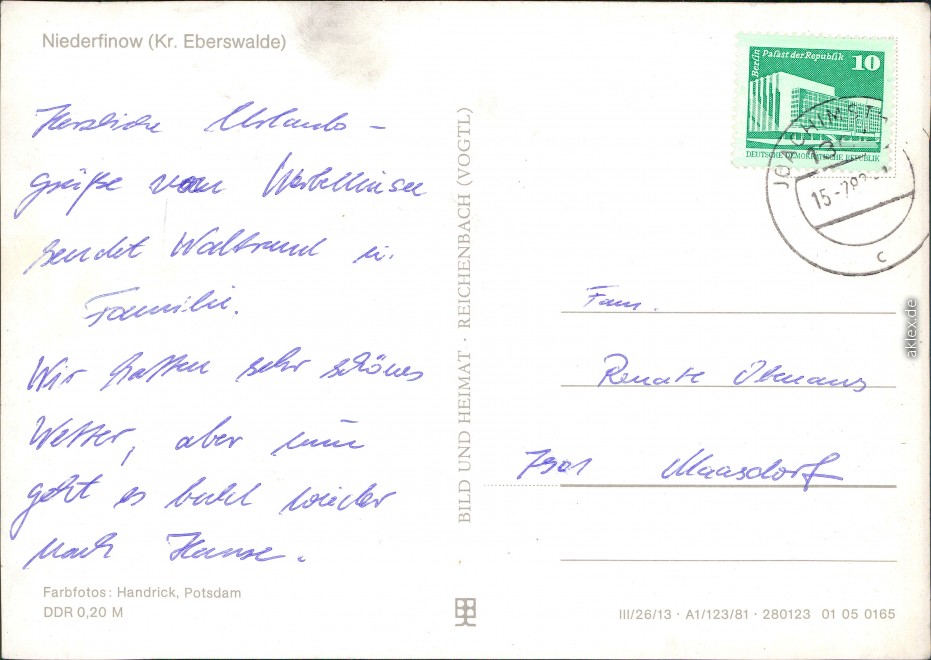 Niederfinow (Kr. Eberswalde)
Herzliche Urlaubs-
grüße vom Werbellinsee
sendet Waltraud u.
Familie.
Wir hatten sehr schönes
Wetter, aber nun
geht es bald wieder
nach Hause.
Farbfotos: Handrick, Potsdam
DDR 0,20 M
BILD UND HEIMAT · REICHENBACH (VOGTL)
Berlin
Palast der Republik
10
DEUTSCHE DEMOKRATISCHE REPUBLIK
JOACHIMST
15-7
c
Fam.
Renate
Maasdorf
III/26/13 · A1/123/81 · 280123 01 05 0165
aklex.de